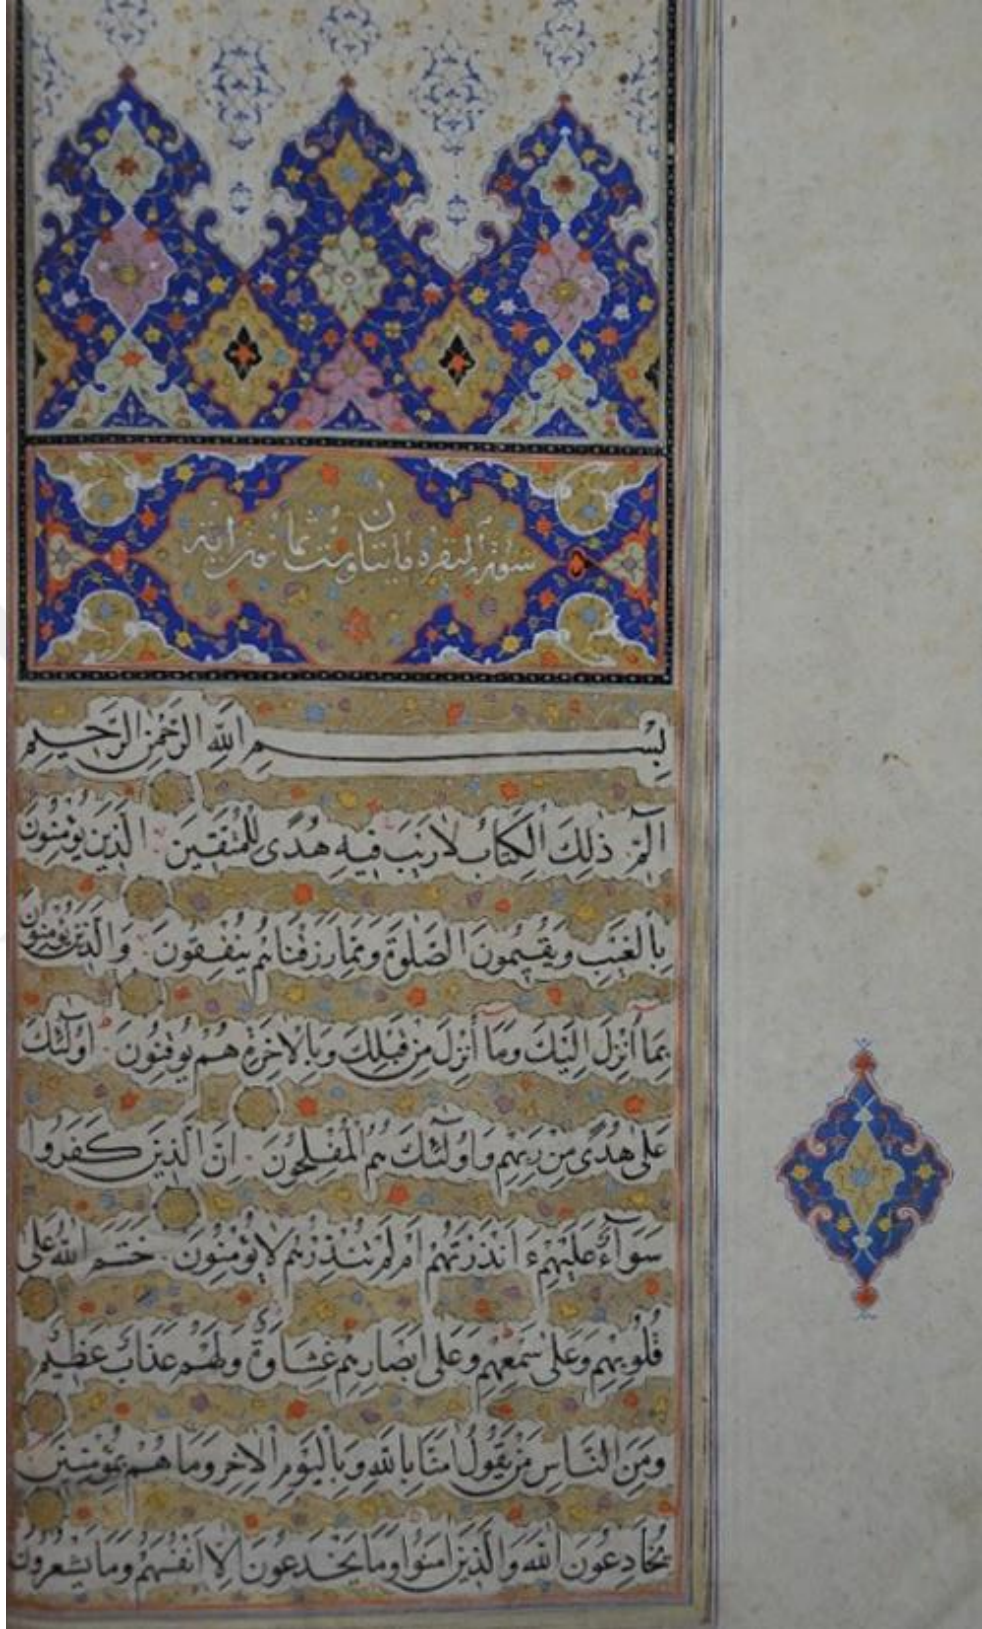 سورة البقره مايتان وست ثمانون اية
بِسْمِ اللّٰهِ الرَّحْمٰنِ الرَّحِيمِ
الٓمٓ ذٰلِكَ الْكِتَابُ لَا رَيْبَ فِيهِ هُدًى لِلْمُتَّقِينَ الَّذِينَ يُؤْمِنُونَ
بِالْغَيْبِ وَيُقِيمُونَ الصَّلٰوةَ وَمِمَّا رَزَقْنَاهُمْ يُنْفِقُونَ وَالَّذِينَ يُؤْمِنُونَ
بِمَآ اُنْزِلَ اِلَيْكَ وَمَآ اُنْزِلَ مِنْ قَبْلِكَ وَبِالْاٰخِرَةِ هُمْ يُوقِنُونَ اُولٰٓئِكَ
عَلٰى هُدًى مِنْ رَبِّهِمْ وَاُولٰٓئِكَ هُمُ الْمُفْلِحُونَ اِنَّ الَّذِينَ كَفَرُوا
سَوَآءٌ عَلَيْهِمْ ءَاَنْذَرْتَهُمْ اَمْ لَمْ تُنْذِرْهُمْ لَا يُؤْمِنُونَ خَتَمَ اللّٰهُ عَلٰى
قُلُوبِهِمْ وَعَلٰى سَمْعِهِمْ وَعَلٰى اَبْصَارِهِمْ غِشَاوَةٌ وَلَهُمْ عَذَابٌ عَظِيمٌ
وَمِنَ النَّاسِ مَنْ يَقُولُ اٰمَنَّا بِاللّٰهِ وَبِالْيَوْمِ الْاٰخِرِ وَمَا هُمْ بِمُؤْمِنِينَ
يُخَادِعُونَ اللّٰهَ وَالَّذِينَ اٰمَنُوا وَمَا يَخْدَعُونَ اِلَّا اَنْفُسَهُمْ وَمَا يَشْعُرُونَ